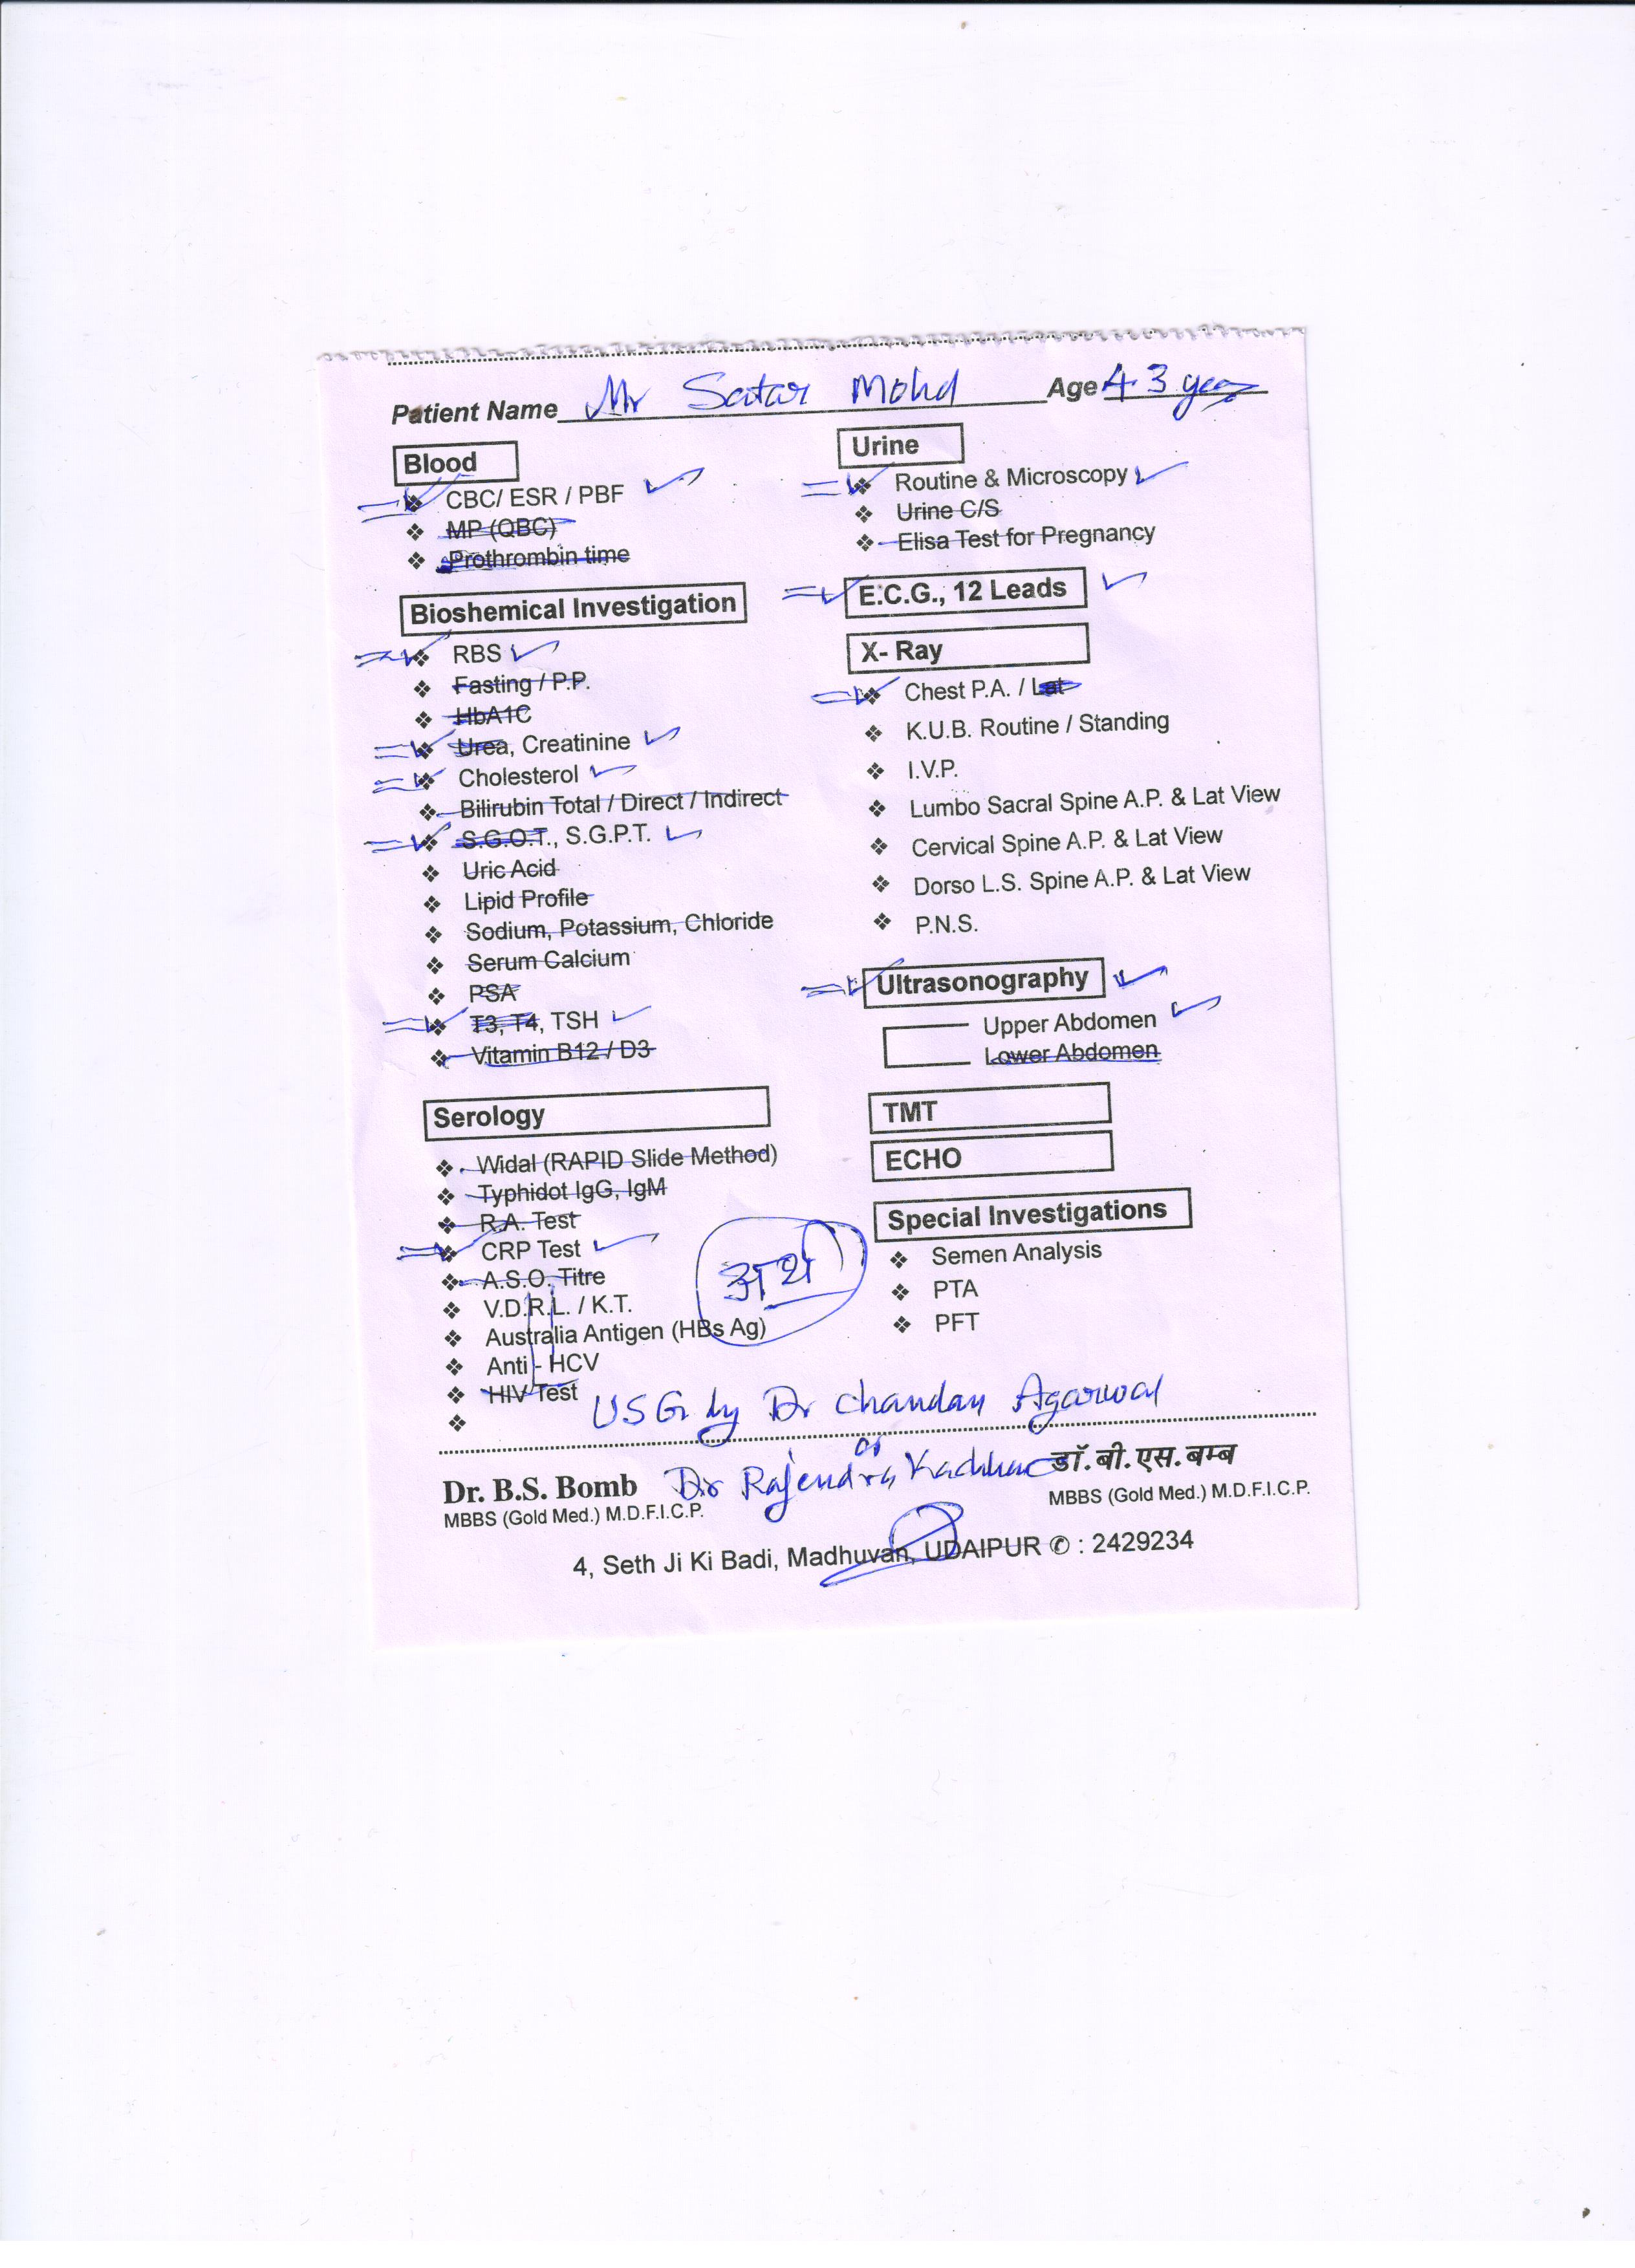 Patient Name Mr Satar Mohd Age 43 years
Blood
CBC/ ESR / PBF
MP (QBC)
Prothrombin time
Bioshemical Investigation
RBS
Fasting / P.P.
HbA1C
Urea, Creatinine
Cholesterol
Bilirubin Total / Direct / Indirect
S.G.O.T., S.G.P.T.
Uric Acid
Lipid Profile
Sodium, Potassium, Chloride
Serum Calcium
PSA
T3, T4, TSH
Vitamin B12 / D3
Serology
Widal (RAPID Slide Method)
Typhidot IgG, IgM
R.A. Test
CRP Test
A.S.O. Titre
V.D.R.L. / K.T.
Australia Antigen (HBs Ag)
Anti - HCV
HIV Test
Urine
Routine & Microscopy
Urine C/S
Elisa Test for Pregnancy
E.C.G., 12 Leads
X- Ray
Chest P.A. / Lat
K.U.B. Routine / Standing
I.V.P.
Lumbo Sacral Spine A.P. & Lat View
Cervical Spine A.P. & Lat View
Dorso L.S. Spine A.P. & Lat View
P.N.S.
Ultrasonography
Upper Abdomen
Lower Abdomen
TMT
ECHO
Special Investigations
Semen Analysis
PTA
PFT
USG by Dr Chandan Agarwal
or
Dr Rajendra
Dr. B.S. Bomb
MBBS (Gold Med.) M.D.F.I.C.P.
डॉ. बी. एस. बम्ब
MBBS (Gold Med.) M.D.F.I.C.P.
4, Seth Ji Ki Badi, Madhuvan, UDAIPUR ✆ : 2429234